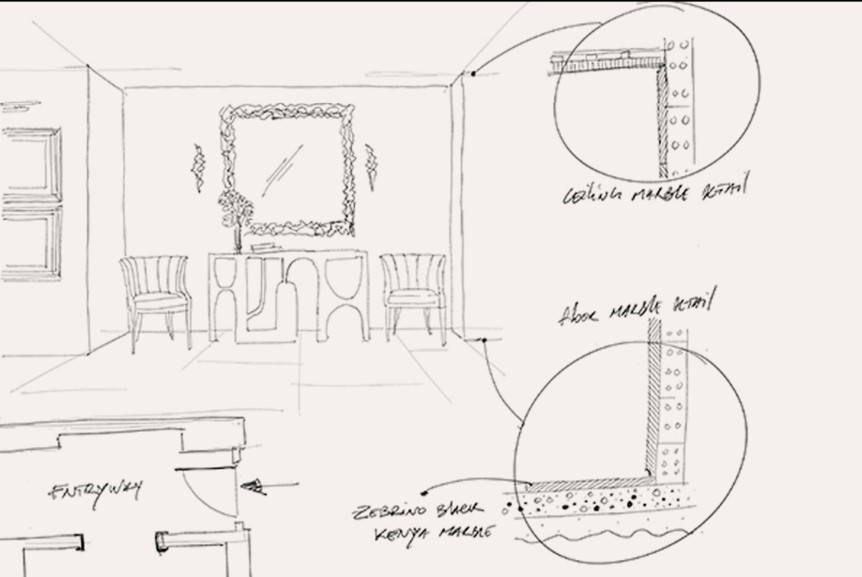 CEILING MARBLE DETAIL
FLOOR MARBLE DETAIL
ENTRYWAY
ZEBRINO BLACK
KENYA MARBLE